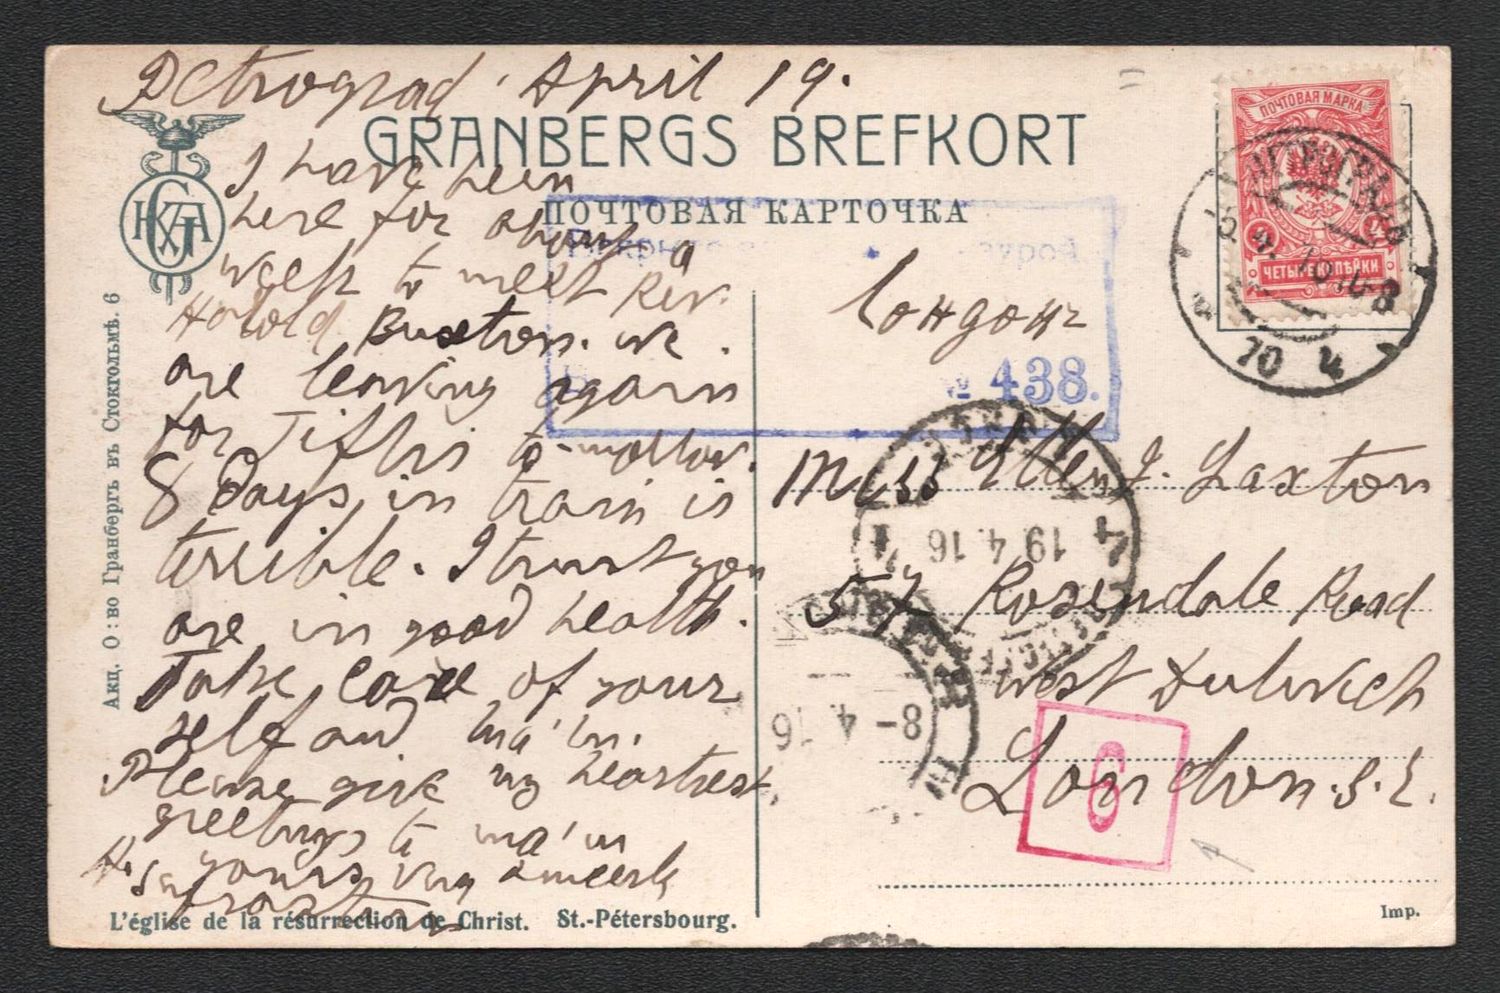 Petrograd. April 19.
GRANBERGS BREFKORT
ПОЧТОВАЯ КАРТОЧКА
I have been
here for about a
week to meet Rev.
Harold Buxton. we
are leaving again
for Tiflis to-morrow.
8 Days in train is
terrible. I trust you
are in good health.
Take care of your
self and ma'm.
Please give my heartiest
greetings to ma'm
yours very sincerely
L'église de la résurrection de Christ. St.-Pétersbourg.
Акц. О:во Гранбергъ въ Стокгольмѣ. 6
ПОЧТОВАЯ МАРКА
ЧЕТЫРЕ КОПѢЙКИ
ПЕТРОГРАДЪ
10 4
Лондонъ
№ 438.
Miss Ellen J. Laxton
19.4.16
57 Rosendale Road
West Dulwich
8-4.16
London. S.E.
6
Imp.